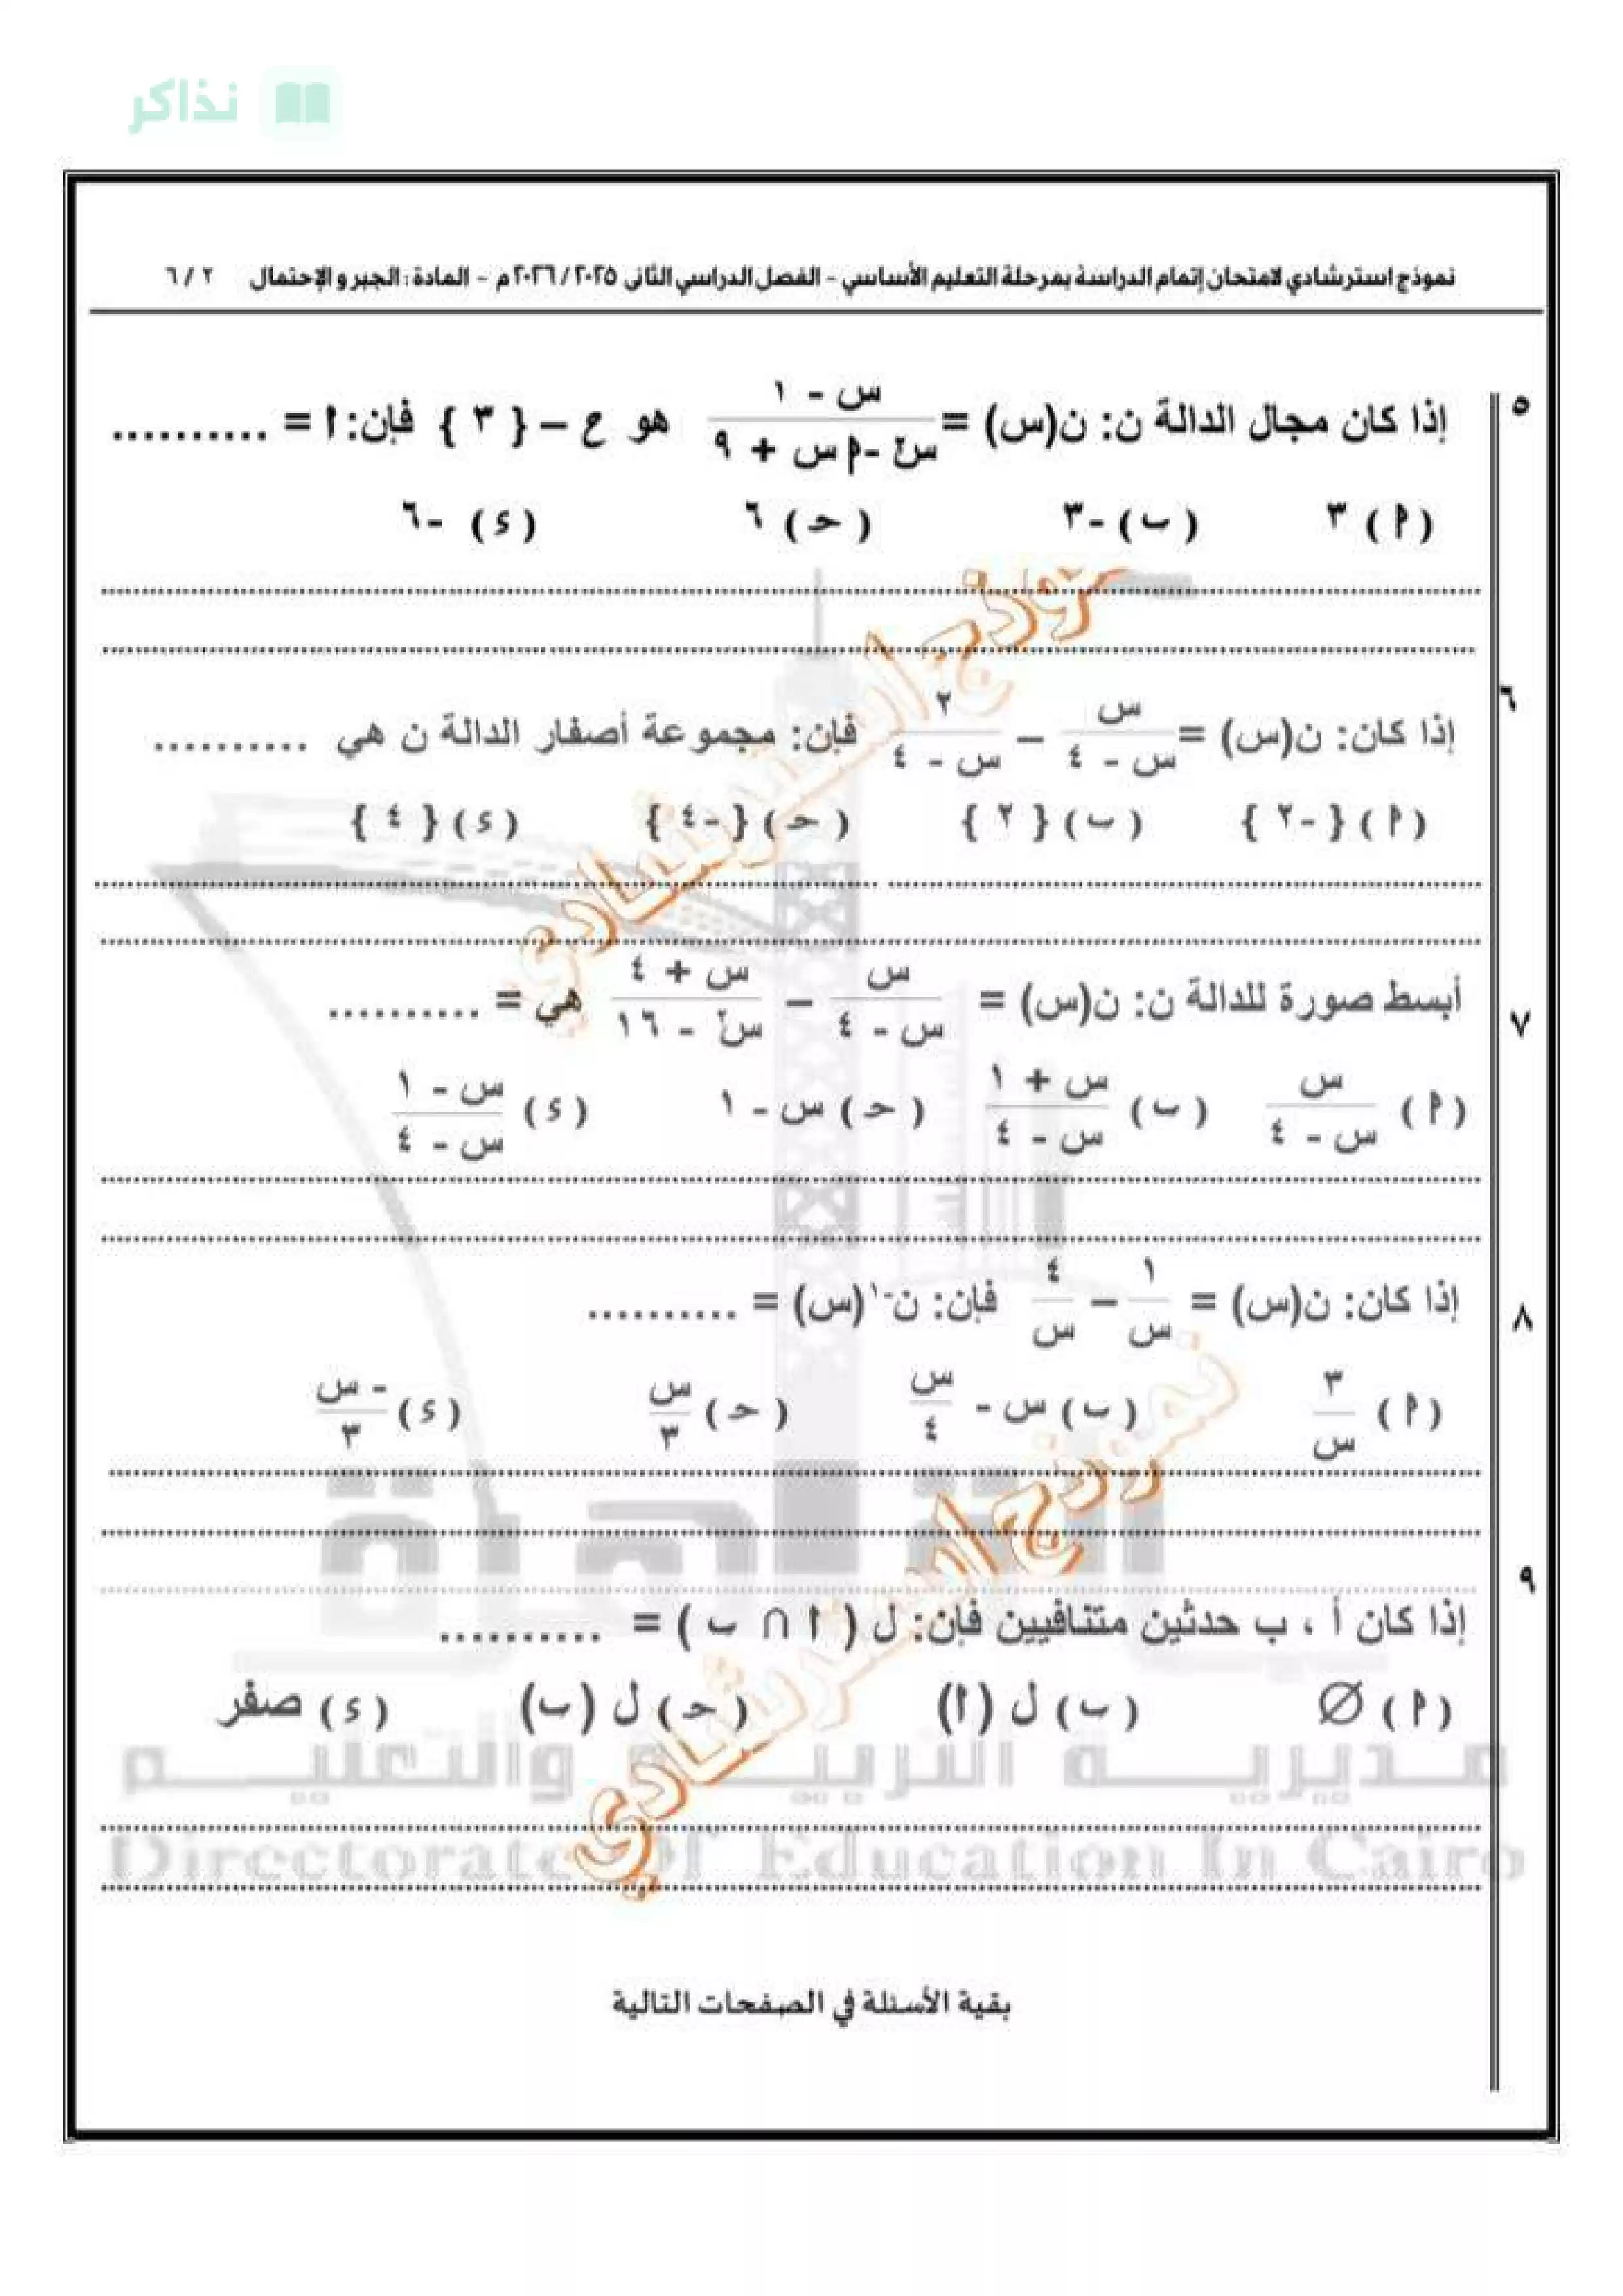 نذاكر
نموذج استرشادي لامتحان إتمام الدراسة بمرحلة التعليم الأساسي - الفصل الدراسي الثانى ٢٠٢٥ / ٢٠٢٦ م - المادة : الجبر و الإحتمال ٢ / ٦
٥ إذا كان مجال الدالة ن: ن(س) = (س - ١) / (س² - ا س + ٩) هو ع – { ٣ } فإن: ا = ..........
( ا ) ٣ ( ب ) -٣ ( حـ ) ٦ ( ء ) -٦
٦ إذا كان: ن(س) = س / (س - ٤) – ٢ / (س - ٤) فإن: مجموعة أصفار الدالة ن هي ..........
( ا ) { -٢ } ( ب ) { ٢ } ( حـ ) { -٤ } ( ء ) { ٤ }
٧ أبسط صورة للدالة ن: ن(س) = س / (س - ٤) – (س + ٤) / (س² - ١٦) هي = ..........
( ا ) س / (س - ٤) ( ب ) (س + ١) / (س - ٤) ( حـ ) س - ١ ( ء ) (س - ١) / (س - ٤)
٨ إذا كان: ن(س) = ١ / س – ٤ / س فإن: ن⁻¹(س) = ..........
( ا ) ٣ / س ( ب ) س - س / ٤ ( حـ ) س / ٣ ( ء ) - س / ٣
٩
إذا كان أ ، ب حدثين متنافيين فإن: ل ( ا ∩ ب ) = ..........
( ا ) ∅ ( ب ) ل (ا) ( حـ ) ل (ب) ( ء ) صفر
مديرية التربية والتعليم
Directorate Of Education In Cairo
بقية الأسئلة في الصفحات التالية
نموذج استرشادي
نموذج استرشادي